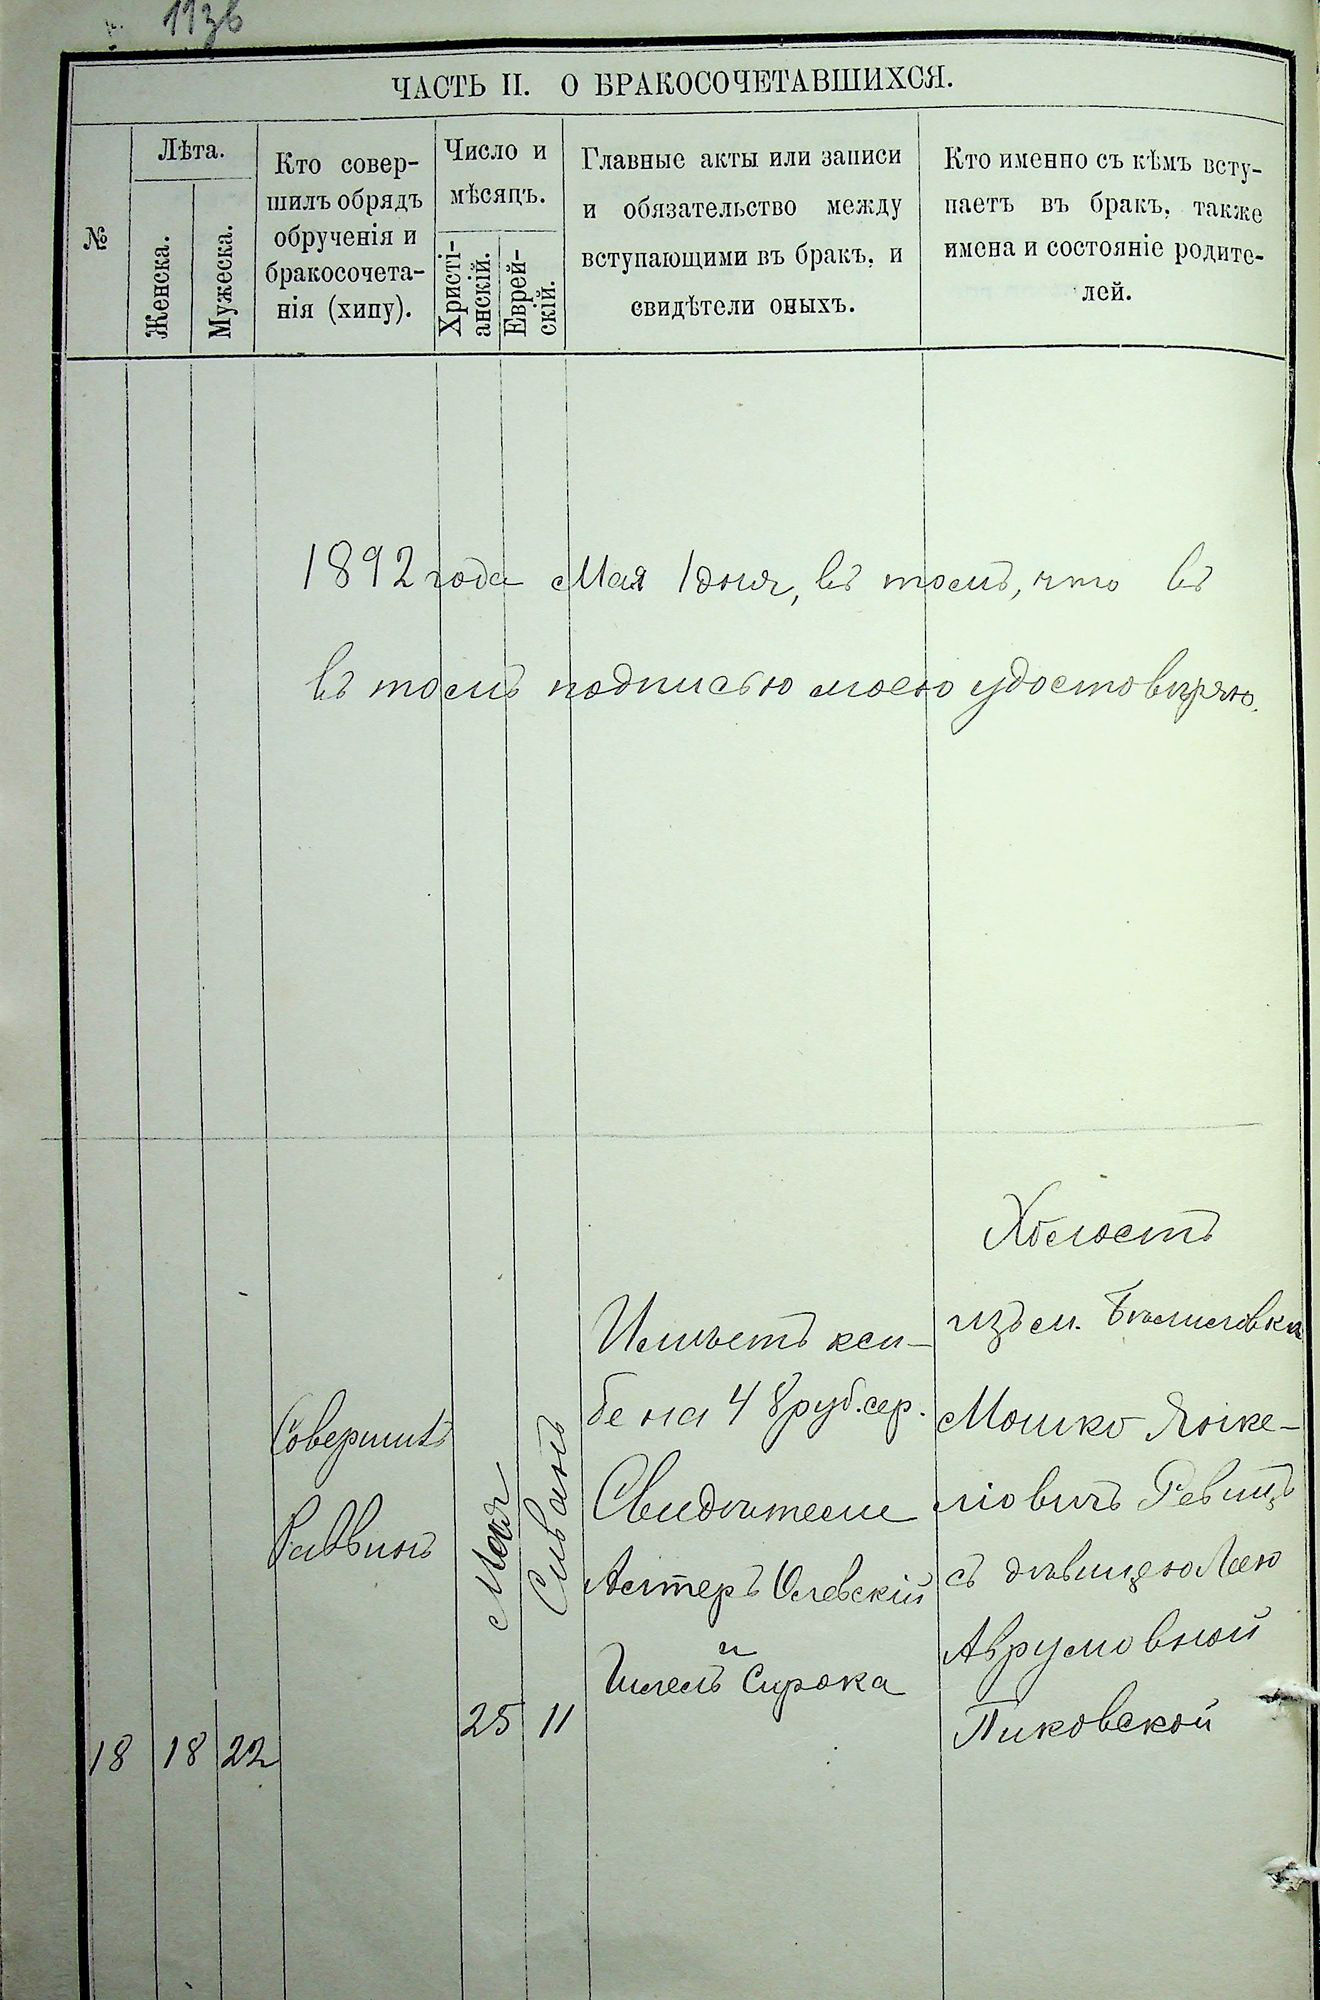 113б
ЧАСТЬ II. О БРАКОСОЧЕТАВШИХСЯ.
№
Лѣта.
Женска.
Мужеска.
Кто совер-
шилъ обрядъ
обрученія и
бракосочета-
нія (хипу).
Число и
мѣсяцъ.
Христі-
анскій.
Еврей-
скій.
Главные акты или записи
и обязательство между
вступающими въ бракъ, и
свидѣтели оныхъ.
Кто именно съ кѣмъ всту-
паетъ въ бракъ, также
имена и состояніе родите-
лей.
1892 года Мая 1 дня, въ томъ, что въ
въ томъ подписью моею удостовѣряю.
18
18
22
Совершилъ
Раввинъ
Мая
25
Сиванъ
11
Имѣетъ кси-
бе на 48 руб. сер.
Свидѣтели
Олевскій
и
Сирока
Холостъ
изъ м.
Мошко Янке-
ліовичъ
съ дѣвицею Леею
Аврумовной
Пиковской